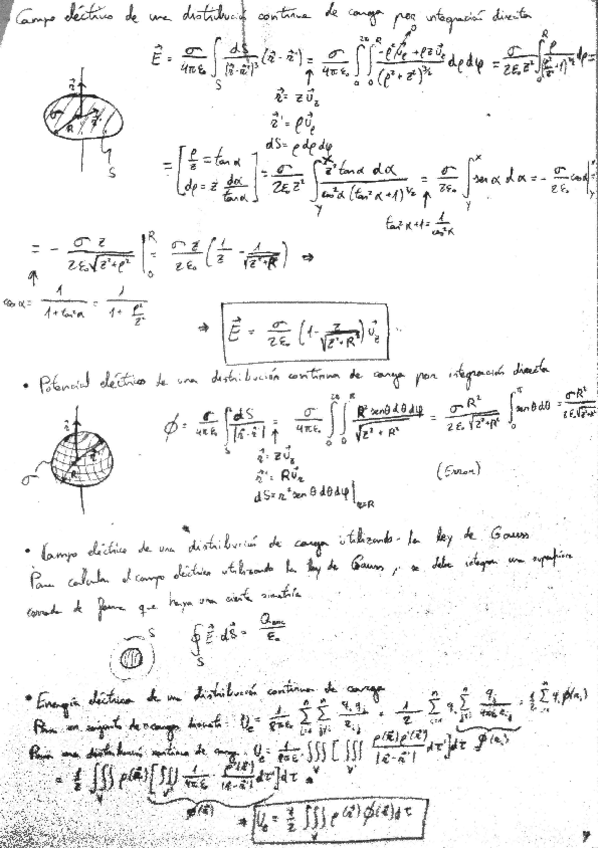 Campo eléctrico de una distribución continua de carga por integración directa
E⃗ = σ/4πε₀ ∫_S dS/|r⃗-r⃗'|³ (r⃗-r⃗') = σ/4πε₀ ∫₀^2π ∫₀^R (-ρ²u⃗ρ + ρz u⃗z)/(ρ²+z²)^3/2 dρdφ = σ/2ε₀z² ∫₀^R ρ/(ρ²/z²+1)^3/2 dρ =
r⃗ = z u⃗z
r⃗' = ρu⃗ρ
dS = ρ dρ dφ
σ R r⃗ r⃗' S
= [ρ/z = tan α, dρ = z dα/tan α] = σ/2ε₀z² ∫_y^x z² tan α dα/cos²α (tan²α+1)^1/2 = σ/2ε₀ ∫_y^x sen α dα = - σ/2ε₀ cos α |_y^x
tan²α+1 = 1/cos²α
= - σ z/2ε₀√(z²+ρ²) |₀^R = σ z/2ε₀ (1/z - 1/√(z²+R²)) ⇒
cos α = 1/1+tan²α = 1/1+ρ²/z²
⇒ E⃗ = σ/2ε₀ (1 - z/√(z²+R²)) u⃗z
• Potencial eléctrico de una distribución continua de carga por integración directa
φ = σ/4πε₀ ∫_S dS/|r⃗-r⃗'| = σ/4πε₀ ∫₀^2π ∫₀^R R² senθ dθ dφ/√(z²+R²) = σR²/2ε₀√(z²+R²) ∫₀^π senθ dθ = σR²/2ε₀√(z²+R²)
r⃗ = z u⃗z
r⃗' = R u⃗r
dS = r² sen θ dθ dφ |r=R
(Error)
σ R r⃗ r⃗'
• Campo eléctrico de una distribución de carga utilizando la ley de Gauss
Para calcular el campo eléctrico utilizando la ley de Gauss, se debe integrar una superficie
cerrada de forma que haya una cierta simetría
S ∮_S E⃗·dS⃗ = Q/ε₀
• Energía eléctrica de una distribución continua de carga
Para un conjunto de n cargas
Para una distribución continua de carga
= 1/2 ∭_V ρ(r⃗) [∭_V' 1/4πε₀ ρ(r⃗')/|r⃗-r⃗'| dτ'] dτ
φ(r⃗)
⇒ Uₑ = 1/2 ∭_V ρ(r⃗) φ(r⃗) dτ